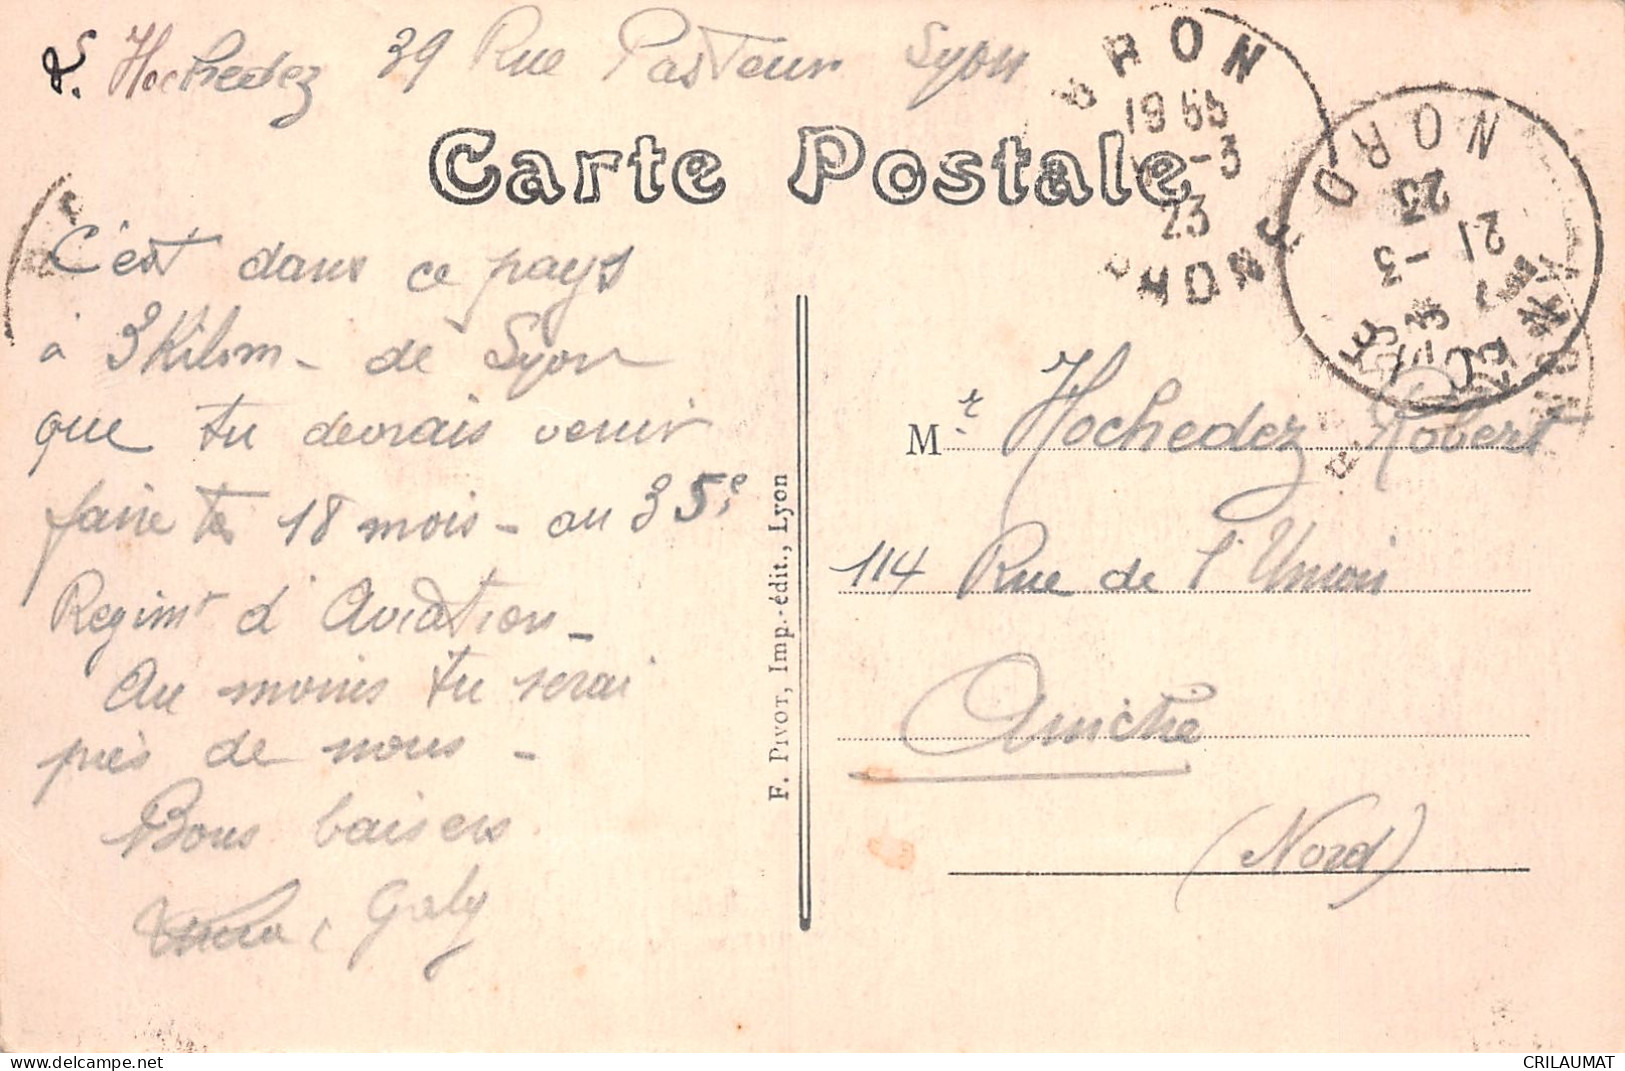 L. Hochedez 39 Rue Pasteur Lyon
Carte Postale
BRON
1955
-3
23
RHONE
NORD
23
21
-3
C'est dans ce pays
à 3 Kilom - de Lyon
que tu devrais venir
faire tes 18 mois - au 35e
Regimt d'Aviation -
Au moins tu serai
près de nous -
Bons baisers
Galy
F. Pivot, Imp.-édit., Lyon
Mr Hochedez Robert
114 Rue de l'Union
Aniche
(Nord)
CRILAUMAT